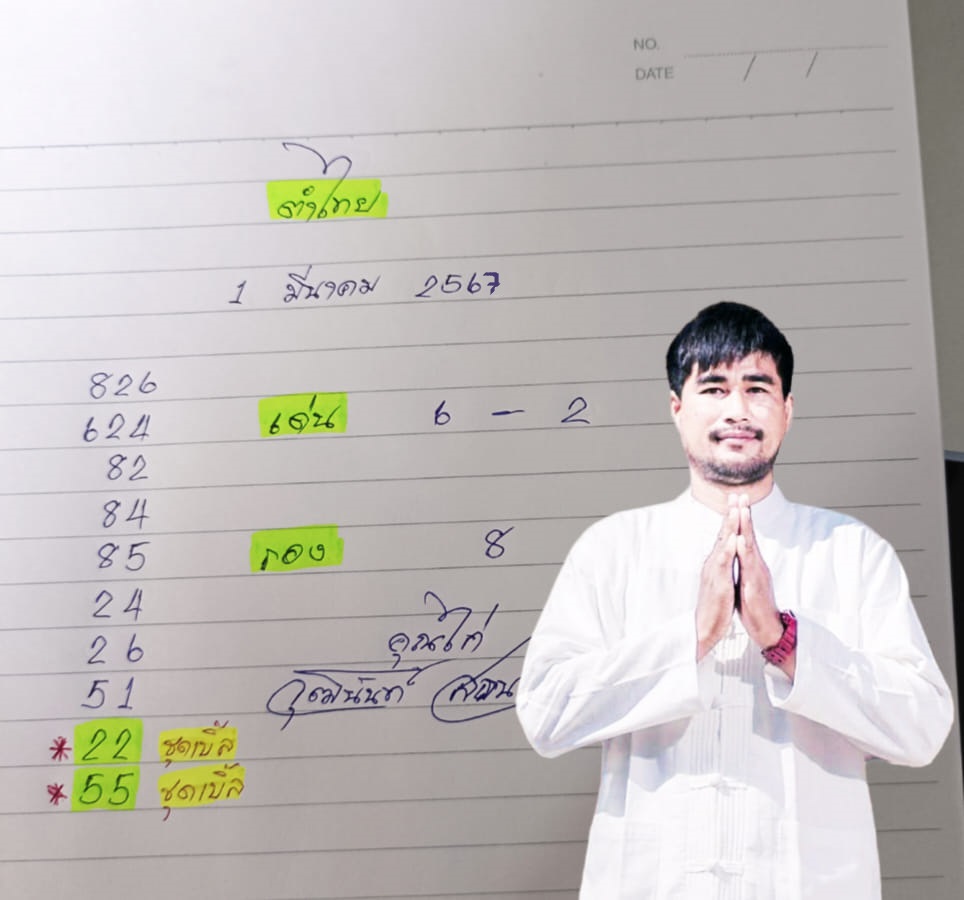 NO.
DATE / /
ลำไทย
1 มีนาคม 2567
826
624 เด่น 6 - 2
82
84
85 รอง 8
24
26 คุณไก่
51 วุฒินันท์
* 22 ชุดเบิ้ล
* 55 ชุดเบิ้ล